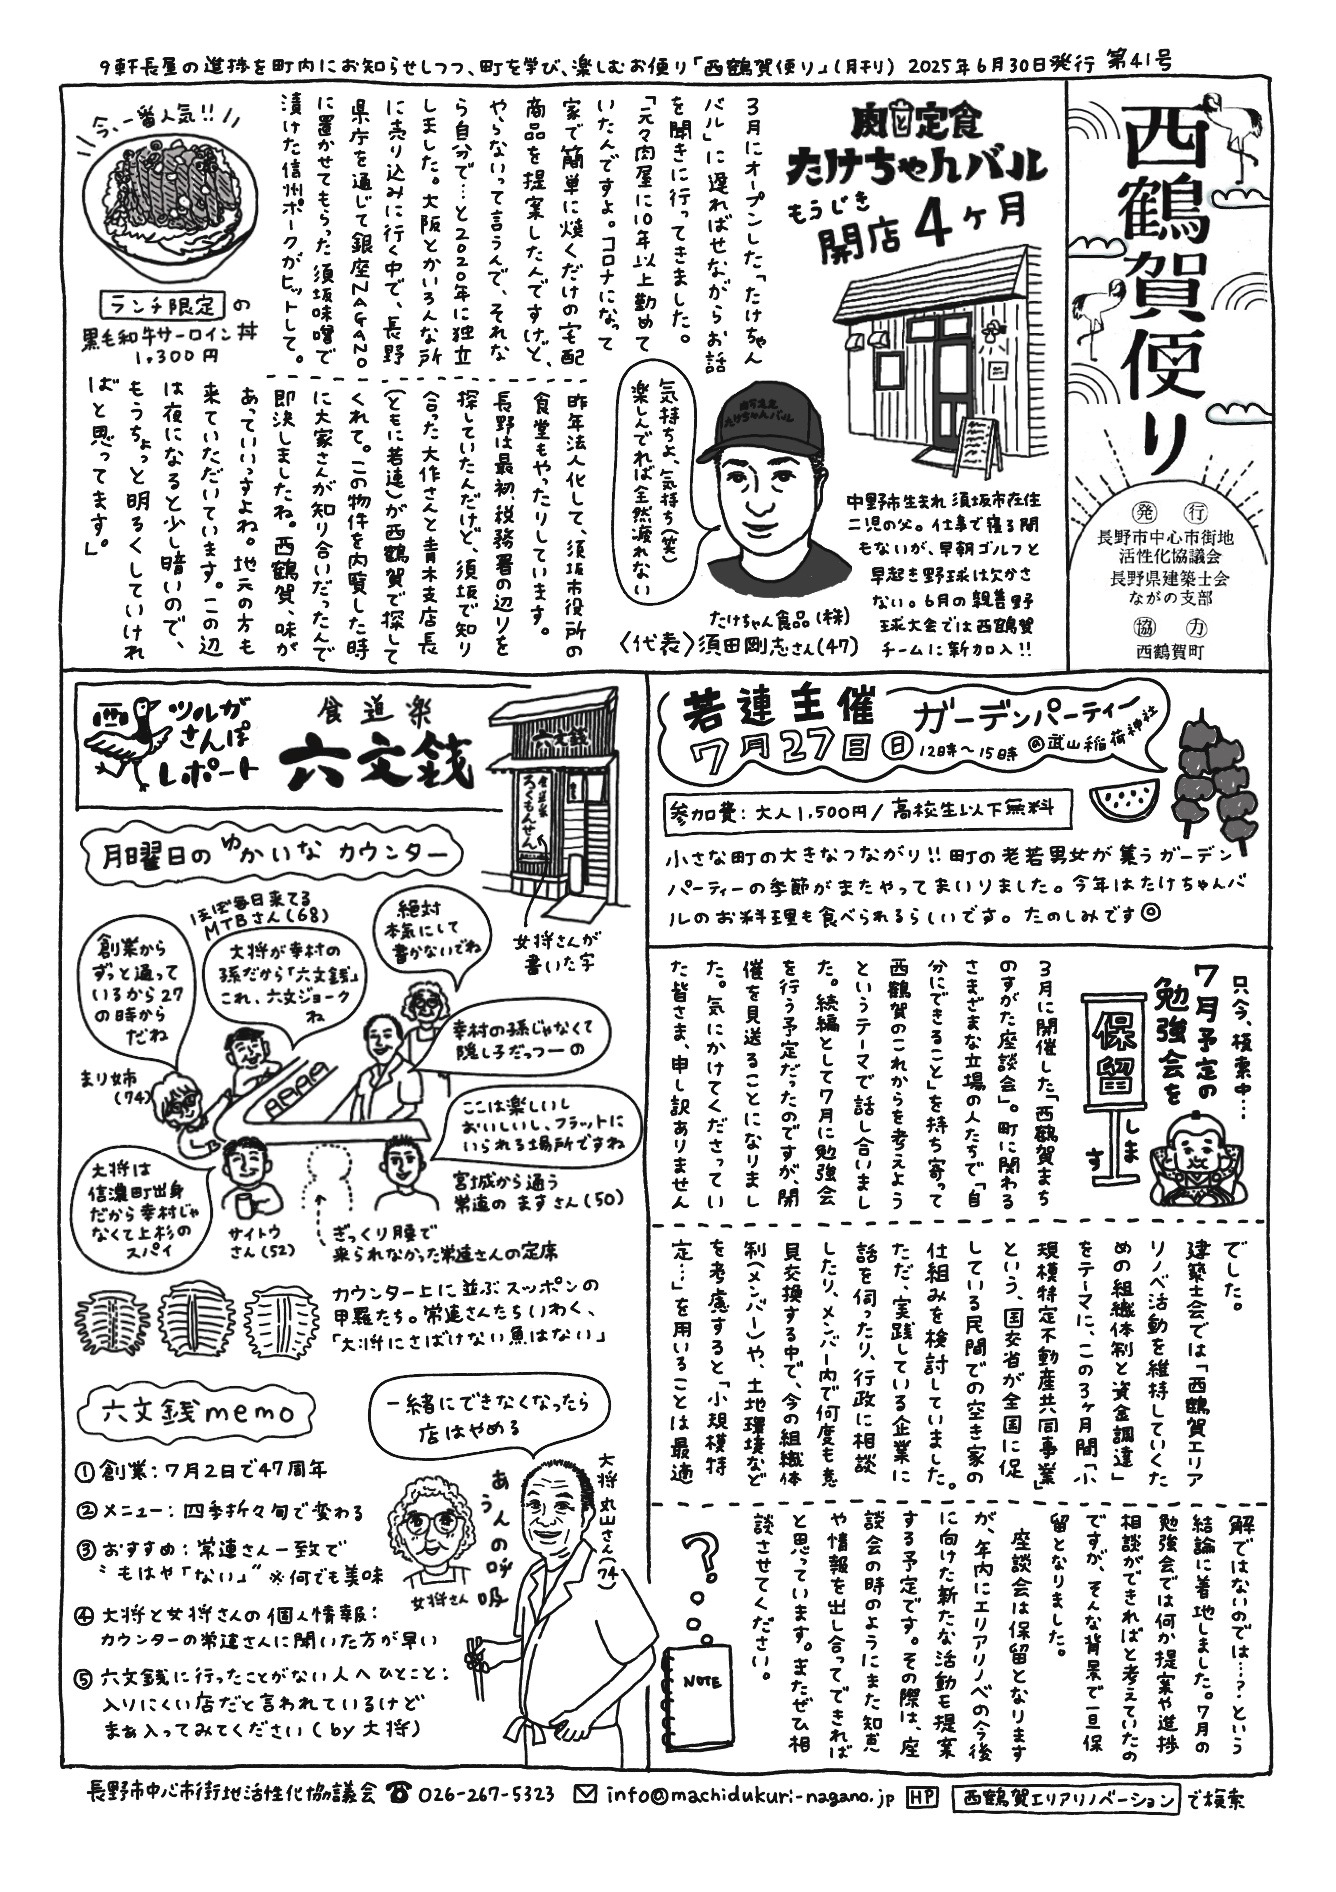 9軒長屋の進捗を町内にお知らせしつつ、町を学び、楽しむお便り「西鶴賀便り」(月刊) 2025年6月30日発行 第41号
西鶴賀便り
発行
長野市中心市街地
活性化協議会
長野県建築士会
ながの支部
協力
西鶴賀町
肉と定食
たけちゃんバル
もうじき
開店4ヶ月
3月にオープンした「たけちゃん
バル」に遅ればせながらお話
を聞きに行ってきました。
「元々肉屋に10年以上勤めて
いたんですよ。コロナになって
家で簡単に焼くだけの宅配
商品を提案したんですけど、
やらないって言うんで、それな
ら自分で…と2020年に独立
しました。大阪とかいろんな所
に売り込みに行く中で、長野
県庁を通じて銀座NAGANO
に置かせてもらった須坂味噌で
漬けた信州ポークがヒットして。
今、一番人気!!
ランチ限定の
黒毛和牛サーロイン丼
1,300円
昨年法人化して、須坂市役所の
食堂もやったりしています。
長野は最初、税務署の辺りを
探していたんだけど、須坂で知り
合った大作さんと青木支店長
(ともに若連)が西鶴賀で探して
くれて。この物件を内覧した時
に大家さんが知り合いだったんで
即決しましたね。西鶴賀、味が
あっていいっすよね。地元の方も
来ていただいています。この辺
は夜になると少し暗いので、
もうちょっと明るくしていけれ
ばと思ってます。」
気持ちよ、気持ち(笑)
楽しんでれば全然疲れない
たけちゃんバル
たけちゃん食品(株)
〈代表〉須田剛志さん(47)
中野市生まれ須坂市在住
二児の父。仕事で寝る間
もないが、早朝ゴルフと
早起き野球は欠かさ
ない。6月の親善野
球大会では西鶴賀
チームに新加入!!
ツルガ
さんぽ
レポート
食道楽
六文銭
六文銭
食道楽
ろくもんせん
女将さんが
書いた字
月曜日のゆかいなカウンター
ほぼ毎日来てる
MTBさん(68)
創業から
ずっと通って
いるから27
の時から
だね
大将が幸村の
孫だから「六文銭」
これ、六文ジョーク
ね
絶対
本気にして
書かないでね
幸村の孫じゃなくて
隠し子だっつーの
まり姉
(74)
ここは楽しいし
おいしいし、フラットに
いられる場所ですね
宮城から通う
常連のますさん(50)
大将は
信濃町出身
だから幸村じゃ
なくて上杉の
スパイ
サイトウ
さん(52)
ぎっくり腰で
来られなかった常連さんの定席
カウンター上に並ぶスッポンの
甲羅たち。常連さんたちいわく、
「大将にさばけない魚はない」
六文銭memo
①創業:7月2日で47周年
②メニュー:四季折々旬で変わる
③おすすめ:常連さん一致で
〝もはや「ない」〟※何でも美味
④大将と女将さんの個人情報:
カウンターの常連さんに聞いた方が早い
⑤六文銭に行ったことがない人へひとこと:
入りにくい店だと言われているけど
まぁ入ってみてください(by大将)
一緒にできなくなったら
店はやめる
あうんの呼吸
女将さん
大将 丸山さん(74)
若連主催 ガーデンパーティー
7月27日㊐ 12時〜15時 @武山稲荷神社
参加費:大人1,500円/高校生以下無料
小さな町の大きなつながり!!町の老若男女が集うガーデン
パーティーの季節がまたやってまいりました。今年はたけちゃんバ
ルのお料理も食べられるらしいです。たのしみです◎
只今、模索中…
7月予定の
勉強会を
保留
します
3月に開催した「西鶴賀まち
のすがた座談会」。町に関わる
さまざまな立場の人たちで「自
分にできること」を持ち寄って
西鶴賀のこれからを考えよう
というテーマで話し合いまし
た。続編として7月に勉強会
を行う予定だったのですが、開
催を見送ることになりまし
た。気にかけてくださってい
た皆さま、申し訳ありません
でした。
建築士会では「西鶴賀エリア
リノベ活動を維持していくた
めの組織体制と資金調達」
をテーマに、この3ヶ月間「小
規模特定不動産共同事業」
という、国交省が全国に促
している民間での空き家の
仕組みを検討していました。
ただ、実践している企業に
話を伺ったり、行政に相談
したり、メンバー内で何度も意
見交換する中で、今の組織体
制(メンバー)や、土地環境など
を考慮すると「小規模特
定…」を用いることは最適
解ではないのでは…?という
結論に着地しました。7月の
勉強会では何か提案や進捗
相談ができればと考えていたの
ですが、そんな背景で一旦保
留となりました。
座談会は保留となります
が、年内にエリアリノベの今後
に向けた新たな活動も提案
する予定です。その際は、座
談会の時のようにまた知恵
や情報を出し合ってできれば
と思っています。またぜひ相
談させてください。
?
NOTE
長野市中心市街地活性化協議会 ☎026-267-5323 ✉info@machidukuri-nagano.jp HP 西鶴賀エリアリノベーション で検索